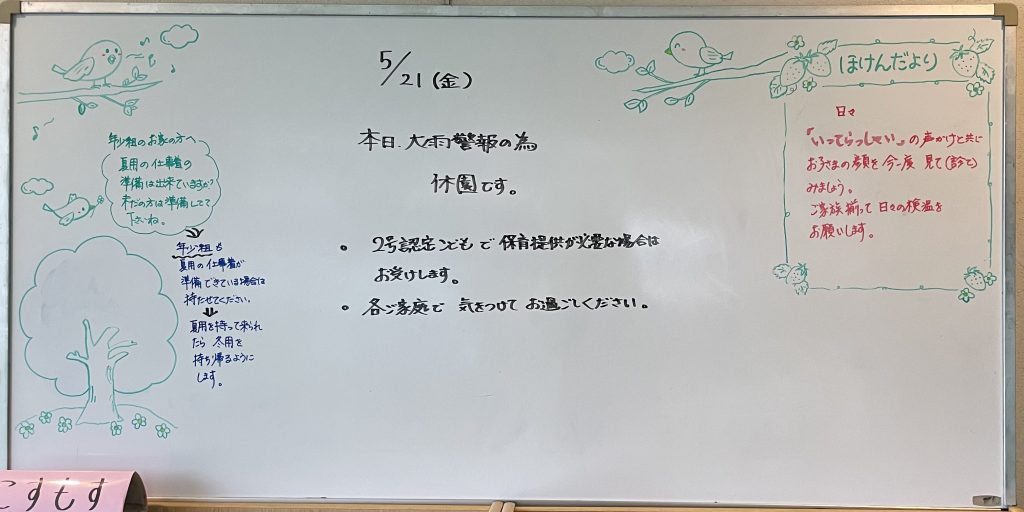 5/21(金)
本日、大雨警報の為
休園です。
• 2号認定こどもで保育提供が必要な場合は
お受けします。
• 各ご家庭で 気をつけて お過ごしください。
年少組のお家の方へ
夏用の仕事着の
準備は出来ていますか?
まだの方は準備してて
下さいね。
年少組も
夏用の仕事着が
準備できている場合は
持たせてください。
夏用を持って来られ
たら 冬用を
持ち帰るように
します。
ほけんだより
日々
「いってらっしゃい」の声かけと共に
お子さまの顔を今一度 見て(診て)
みましょう。
ご家族揃って日々の検温を
お願いします。
こすもす